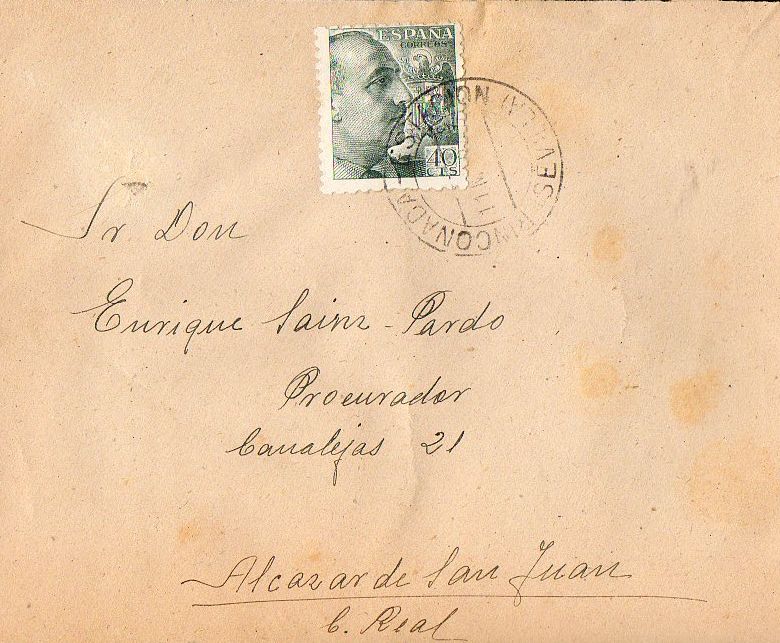 ESPAÑA
CORREOS
40
CTS
RINCONADA - ESTACIÓN (SEVILLA)
Sr Don
Enrique Sainz-Pardo
Procurador
Canalejas 21
Alcazar de San Juan
C. Real